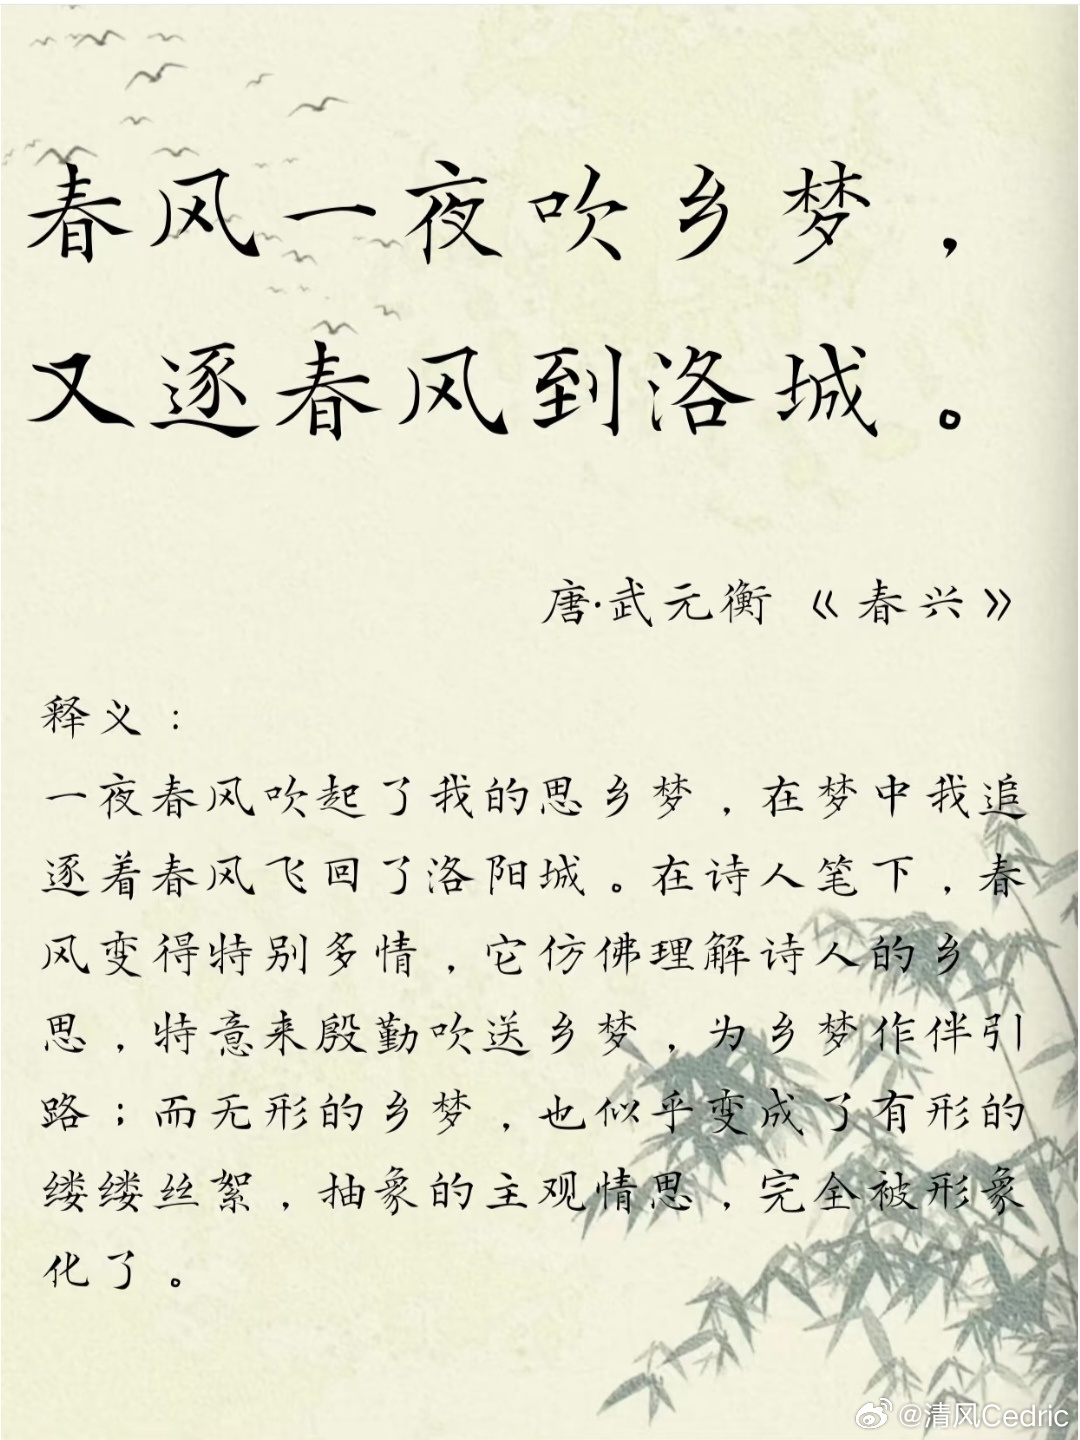 春风一夜吹乡梦，
又逐春风到洛城。
唐·武元衡《春兴》
释义：
一夜春风吹起了我的思乡梦，在梦中我追
逐着春风飞回了洛阳城。在诗人笔下，春
风变得特别多情，它仿佛理解诗人的乡
思，特意来殷勤吹送乡梦，为乡梦作伴引
路；而无形的乡梦，也似乎变成了有形的
缕缕丝絮，抽象的主观情思，完全被形象
化了。
@清风Cedric